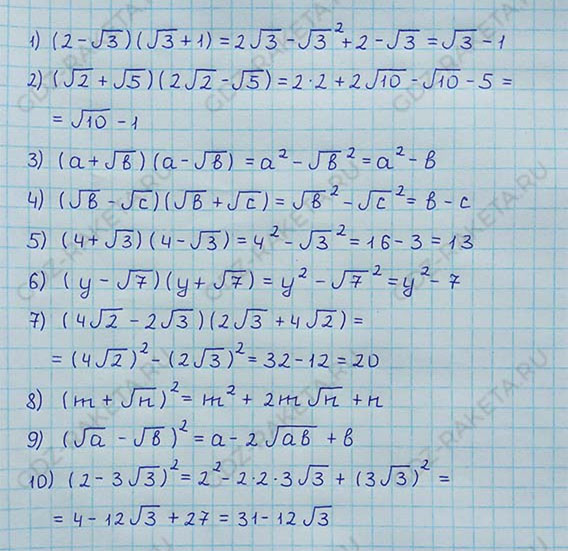 1) (2-√3)(√3+1)=2√3-√3²+2-√3=√3-1
2) (√2+√5)(2√2-√5)=2·2+2√10-√10-5=
=√10-1
3) (a+√в)(a-√в)=a²-√в²=a²-в
4) (√в-√c)(√в+√c)=√в²-√c²=в-c
5) (4+√3)(4-√3)=4²-√3²=16-3=13
6) (y-√7)(y+√7)=y²-√7²=y²-7
7) (4√2-2√3)(2√3+4√2)=
=(4√2)²-(2√3)²=32-12=20
8) (m+√n)²=m²+2m√n+n
9) (√a-√в)²=a-2√aв+в
10) (2-3√3)²=2²-2·2·3√3+(3√3)²=
=4-12√3+27=31-12√3
GDZ-RAKETA.RU